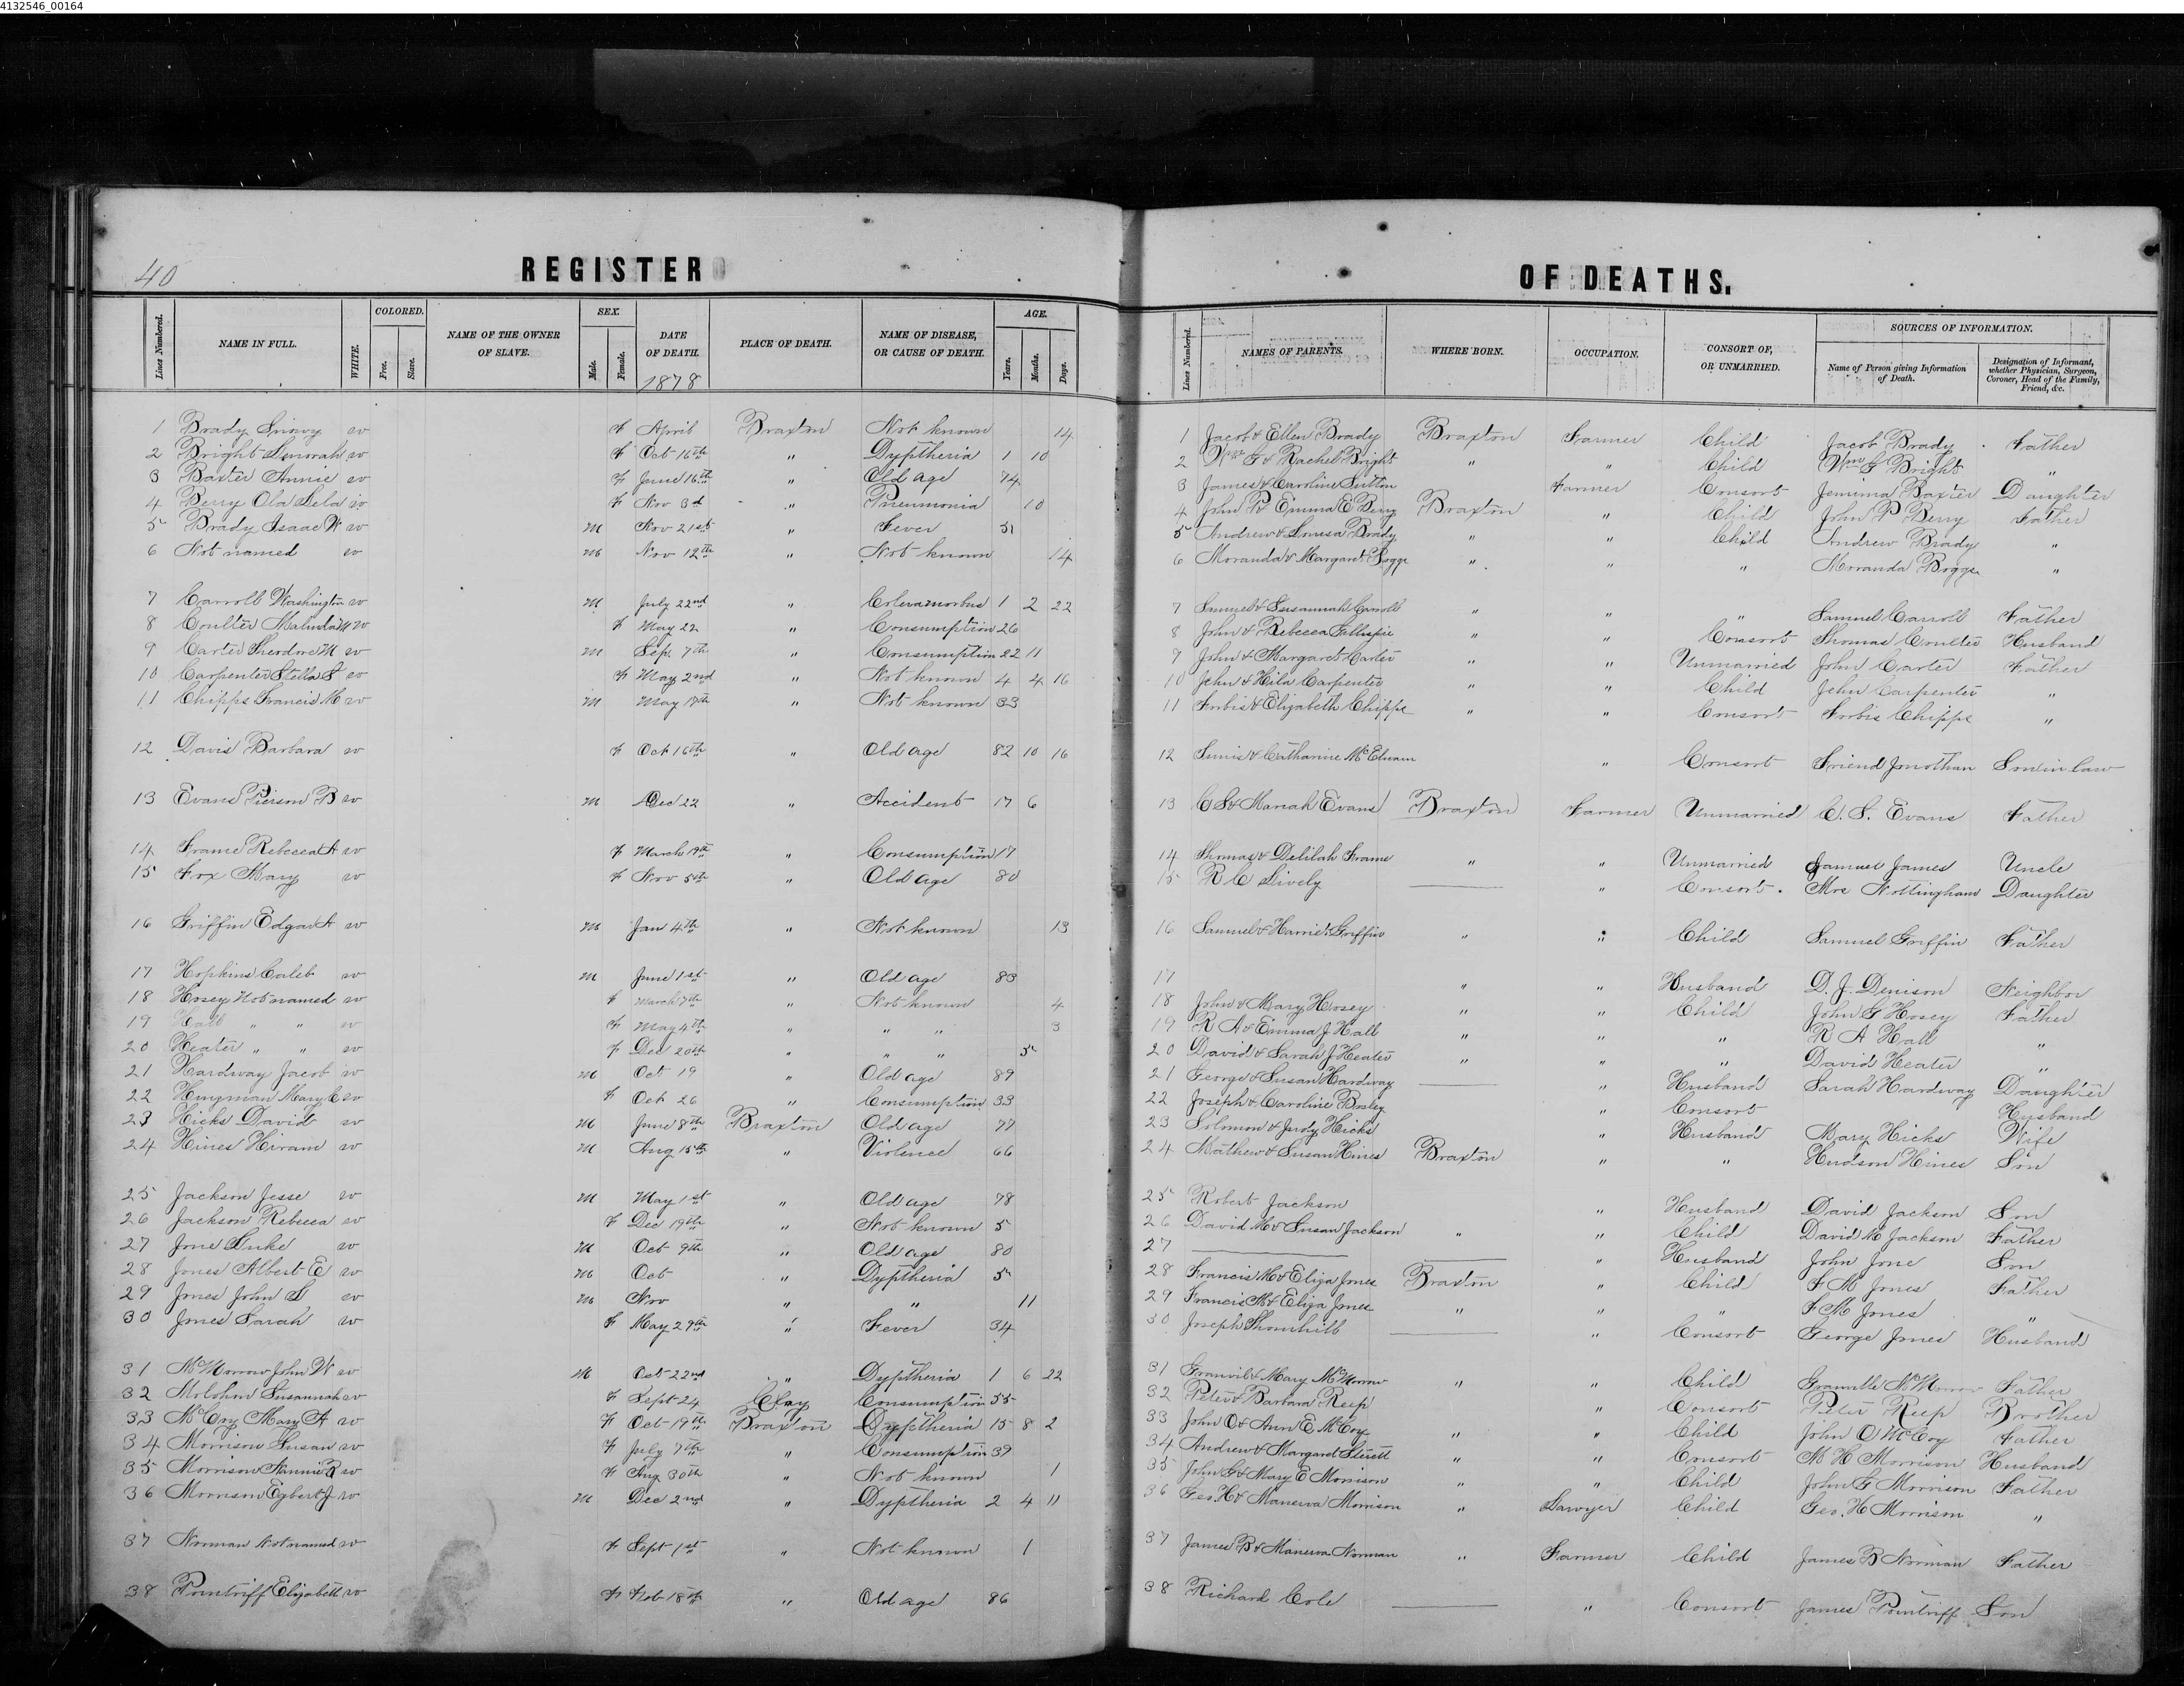 4132546_00164
40
REGISTER OF DEATHS.
Lines Numbered. NAME IN FULL. WHITE. COLORED. Free. Slave. NAME OF THE OWNER OF SLAVE. SEX. Male. Female. DATE OF DEATH. 1878 PLACE OF DEATH. NAME OF DISEASE, OR CAUSE OF DEATH. AGE. Years. Months. Days.
Lines Numbered. NAMES OF PARENTS. WHERE BORN. OCCUPATION. CONSORT OF, OR UNMARRIED. SOURCES OF INFORMATION. Name of Person giving Information of Death. Designation of Informant, whether Physician, Surgeon, Coroner, Head of the Family, Friend, &c.
1 Brady w F April Braxton Not known 14
2 Bright Lenorah w F Oct 16th " Dyptheria 1 10
3 Baxter Annie w F June 16th " Old age 74
4 Berry Ola Lela w F Nov 3d " Pneumonia 10
5 Brady Isaac W w M Nov 21st " Fever 51
6 Not named w M Nov 12th " Not known 14
7 Carroll Washington w M July 22nd " Coleramorbus 1 2 22
8 Coulter Malinda M w F May 22 " Consumption 26
9 Carter Theodore M w M Sep. 7th " Consumption 22 11
10 Carpenter Stella w F May 2nd " Not known 4 4 16
11 Chipps Francis M w M May 17th " Not known 33
12 Davis Barbara w F Oct 16th " Old age 82 10 16
13 Evans Pierson B w M Dec 22 " Accident 17 6
14 Frame Rebecca A w F March 19th " Consumption 17
15 Fox Mary w F Nov 5th " Old age 80
16 Griffin Edgar A w M Jan 4th " Not known 13
17 Hopkins Caleb w M June 1st " Old age 83
18 Hosey Not named w F March 7th " Not known 4
19 Hall " " w F May 4th " " " 3
20 Heater " " w F Dec 20th " " " 5
21 Hardway Jacob w M Oct 19 " Old age 89
22 Hingman Mary C w F Oct 26 " Consumption 33
23 Hicks David w M June 8th Braxton Old age 77
24 Hines Hiram w M Aug 15th " Violence 66
25 Jackson Jesse w M May 1st " Old age 78
26 Jackson Rebecca w F Dec 19th " Not known 5
27 Jone Luke w M Oct 9th " Old age 80
28 Jones Albert E w M Oct " Dyptheria 5
29 Jones John w M Nov " " 11
30 Jones Sarah w F May 29th " Fever 34
31 McMorrow John W w M Oct 22nd " Dyptheria 1 6 22
32 Susannah w F Sept 24 Clay Consumption 55
33 McCoy Mary A w F Oct 19th Braxton Dyptheria 15 8 2
34 Morrison Susan w F July 7th " Consumption 39
35 Morrison Nannie w F Aug 30th " Not known 1
36 Morrison Egbert J w M Dec 2nd " Dyptheria 2 4 11
37 Norman Not named w F Sept 1st " Not known 1
38 Elizabeth w F Feb 18th " Old age 86
1 Jacob & Ellen Brady Braxton Farmer Child Jacob Brady Father
2 Wm G & Rachel Bright " " Child Wm G Bright "
3 James & Caroline Sutton Farmer Consort Jemima Baxter Daughter
4 John P & Emma E Berry Braxton " Child John P Berry Father
5 Andrew & Brady " " Child Andrew Brady "
6 Moranda & Margaret Boggs " " " Moranda Boggs "
7 Samuel & Susannah Carroll " " " Samuel Carroll Father
8 John & Rebecca Gillespie " " Consort Thomas Coulter Husband
9 John & Margaret Carter " " Unmarried John Carter Father
10 John & Hila Carpenter " " Child John Carpenter "
11 Forbis & Elizabeth Chipps " " Consort Forbis Chipps "
12 & Catharine " Consort Friend Jonathan Son in law
13 C S & Mariah Evans Braxton Farmer Unmarried C. S. Evans Father
14 Thomas & Delilah Frame " " Unmarried Samuel James Uncle
15 R C Lively " Consort. Mrs Nottingham Daughter
16 Samuel & Harriet Griffin " " Child Samuel Griffin Father
17 " " Husband D. J. Denison Neighbor
18 John & Mary Hosey " " Child John G Hosey Father
19 R A & Emma J Hall " " " R A Hall "
20 David & Sarah J Heater " " " David Heater "
21 George & Susan Hardway " Husband Sarah Hardway Daughter
22 Joseph & Caroline " Consort Husband
23 Solomon & Judy Hicks " Husband Mary Hicks Wife
24 Mathew & Susan Hines Braxton " " Hudson Hines Son
25 Robert Jackson " Husband David Jackson Son
26 David M & Susan Jackson " " Child David M Jackson Father
27 " Husband John Jone Son
28 Francis M & Eliza Jones Braxton " Child F M Jones Father
29 Francis M & Eliza Jones " " " F M Jones "
30 Joseph Thornhill " Consort George Jones Husband
31 Granvil & Mary McMorrow " " Child Granville McMorrow Father
32 Peter & Barbara Reep " Consort Peter Reep Brother
33 John O & Ann E McCoy " " Child John O McCoy Father
34 Andrew & Margaret " " Consort M H Morrison Husband
35 John G & Mary E Morrison " " Child John G Morrison Father
36 Geo. H & Manerva Morrison " Lawyer Child Geo. H Morrison "
37 James B & Manerva Norman " Farmer Child James B Norman Father
38 Richard Cole " Consort James Son